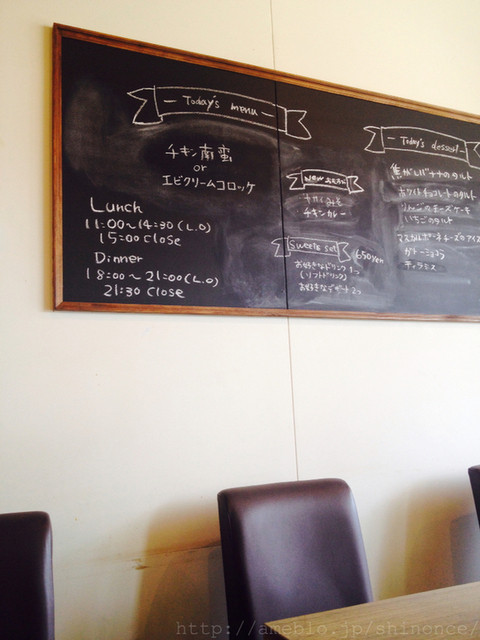 Today's menu
チキン南蛮
or
エビクリームコロッケ
Lunch
11:00～14:30 (L.O)
15:00 close
Dinner
18:00～21:00 (L.O)
21:30 close
New
チキンカレー
Sweets set
650yen
お好きなドリンク 1つ
(ソフトドリンク)
お好きなデザート 2つ
Today's dessert
焦がしバナナのタルト
ホワイトチョコレートのタルト
チーズケーキ
いちごのタルト
マスカルポーネチーズのアイス
ガトーショコラ
ティラミス
http://ameblo.jp/shinonce/